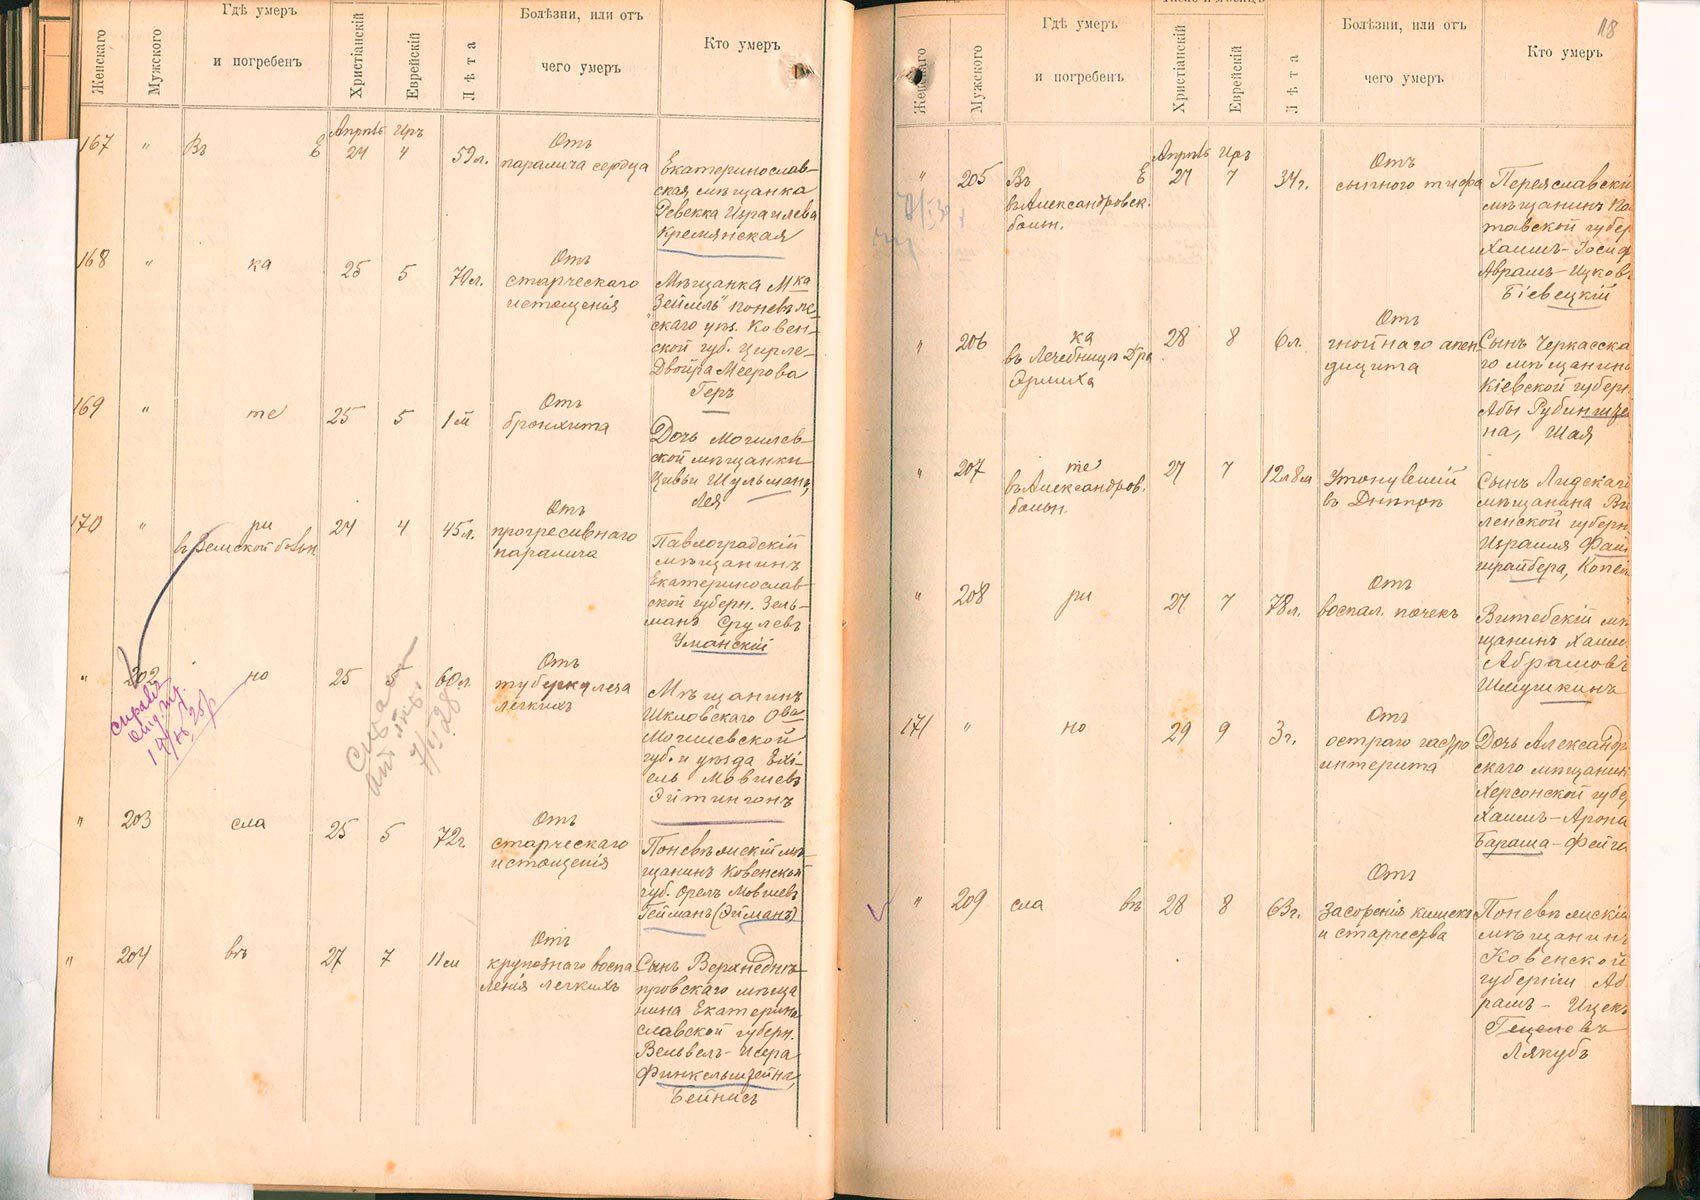 Женскаго
Мужского
Гдѣ умеръ
и погребенъ
Христіанскій
Еврейскій
Лѣта
Болѣзни, или отъ
чего умеръ
Кто умеръ
167
"
Въ
Е
Апрѣль
24
Иръ
4
59 л.
Отъ
паралича сердца
Екатеринослав-
ская мѣщанка
Ревекка Израилева
Кремянская
168
"
ка
25
5
70 л.
Отъ
старческаго
истощенія
Мѣщанка М-ка
"Зеймль" Поневѣж-
скаго уѣз. Ковен-
ской губ. Цирле-
Двойра Меерова
Геръ
169
"
те
25
5
1 м
Отъ
бронхита
Дочь Могилев-
ской мѣщанки
Цивьи Шульманъ,
Лея
170
"
ри
въ Земской больн
24
4
45 л.
Отъ
прогресивнаго
паралича
Павлоградскій
мѣщанинъ
Екатеринослав-
ской губерн. Зель-
манъ Срулевъ
Уманскій
"
202
но
25
60 л.
Отъ
туберкулеза
легкихъ
Мѣщанинъ
Шкловскаго О-ва
Могилевской
губ. и уѣзда Ехі-
ель Мовшевъ
Эйтингонъ
"
203
сла
25
5
72 г.
Отъ
старческаго
истощенія
Поневѣжскій мѣ-
щанинъ Ковенской
губ. Орелъ Мовшев
Гейманъ (Эйманъ)
"
204
въ
27
7
11 м
Отъ
крупознаго воспа
ленія легкихъ
Сынъ Верхнеднѣ-
провскаго мѣща
нина Екатерино
славской губерн.
Вельвелъ-Исера
Финкельштейна,
Бейнисъ
118
Женскаго
Мужского
Гдѣ умеръ
и погребенъ
Число и мѣсяцъ
Христіанскій
Еврейскій
Лѣта
Болѣзни, или отъ
чего умеръ
Кто умеръ
"
205
Въ
Е
въ Александровск.
больн.
Апрѣль
27
Иръ
7
34 г.
Отъ
сыпного тифа
Переяславскій
мѣщанинъ По
тавской губер
Хаимъ-Іосиф
Аврамъ-Ицков
Біевецкій
"
206
ка
въ Лечебницѣ Д-ра
Эрлиха
28
8
6 л.
Отъ
гнойнаго апен-
дицита
Сынъ Черкасска
го мѣщанина
Кіевской губерн.
Абы Рубинште
на, Шая
"
207
те
въ Александров.
больн.
27
7
12 л 8 м
Утонувшій
въ Днѣпрѣ
Сынъ Лидскаго
мѣщанина Ви
ленской губерн
Израиля Фай
шрайбера, Копел
"
208
ри
27
7
78 л.
Отъ
воспал. почекъ
Витебскій мѣ
щанинъ Хаим
Абрамовъ
Шмушкинъ
171
"
но
29
9
3 г.
Отъ
остраго гастро
интерита
Дочь Александр
скаго мѣщанин
Херсонской губе
Хаимъ-Арона
Бараша-Фейга
"
209
сла
въ
28
8
63 г.
Отъ
засоренія кишекъ
и старчества
Поневѣжскій
мѣщанинъ
Ковенской
губерніи Аб
рамъ-Ицек
Гецелевъ
Лякубъ